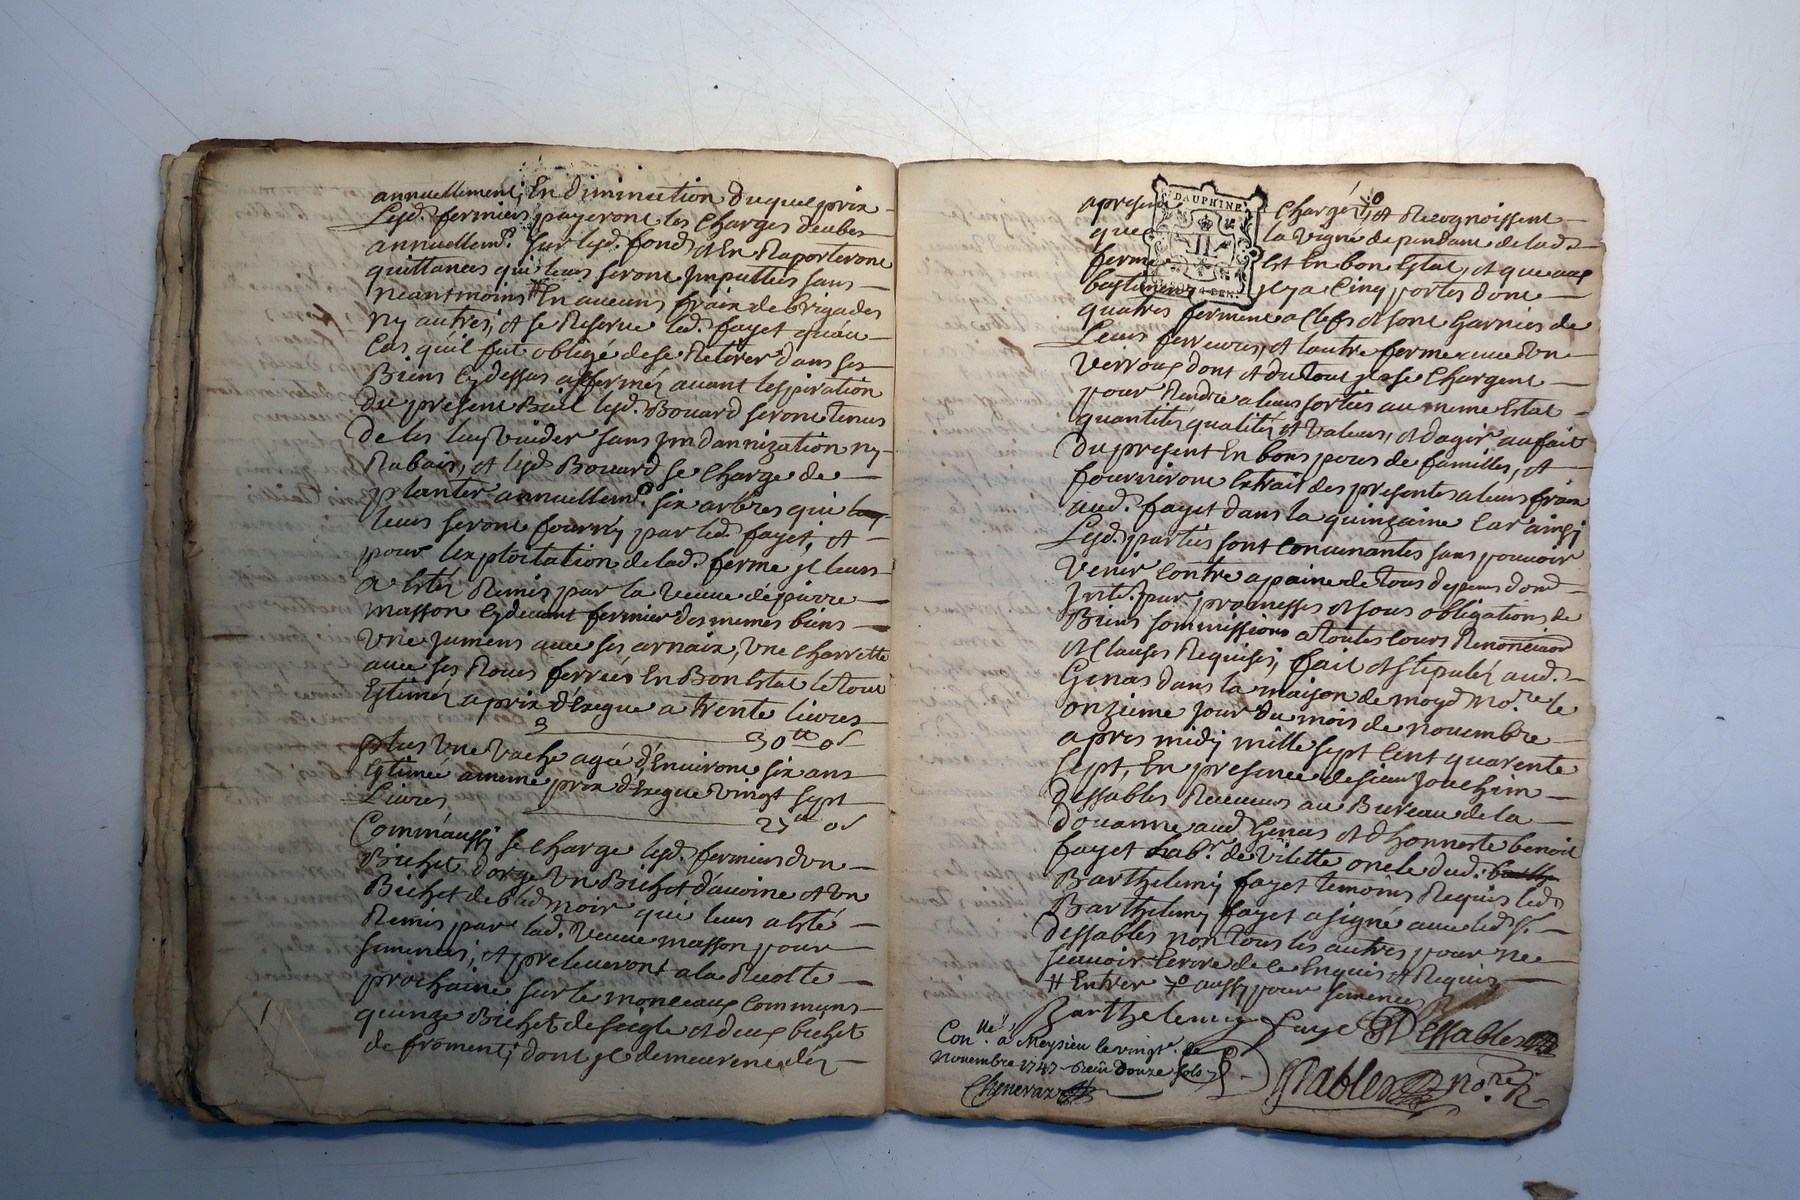 annuellement, En diminution duquel prix
Lesd. fermiers payeront les Charges deubes
annuellemt. sur lesd. fonds Et En Raporteront
quittances qui leurs seront Imputtées sans
neantmoins # En aucuns fraix de brigades
ny autres, et se Reserve led. fayet qu'au
Cas qu'il fut obligé de se Retirer dans ses
Biens Cydessus affermés avant lexpiration
du present Bail lesd. Bouard seront tenus
de les luy vuider sans Indamnization ny
Rabais, et lesd. Bouard se Charge de
planter annuellemt. six arbres qui
leurs seront fourny par led. fayet, et
pour lexploitation de lad. ferme jl leurs
a Esté Remis par la veuve de pierre
masson Cydevant fermier des mêmes biens
Une Jument avec ses arnaix, Une Charrette
avec ses Roues ferrées En Bon Estat le tout
Estimés a prix d'Exegue a trente livres
30tt 0s
plus Une vache agée d'Environt six ans
Estimée a meme prix d'Exegue vingt sept
Livres
27tt 0s
Comm'aussy se Charge lesd. fermiers d'un
Bichet d'orge Un Bichet d'avoine et Un
Bichet de bled noir qui leurs a Esté
Remis par lad. veuve masson pour
semences, et preleveront a la Recolte
prochaine sur le monceaux Communs
quinze Bichet de seigle et deux bichet
de froment, dont jl demeurent des
apresent Chargés, et Recognoissent
DAUPHINE
que la vigne dependant de lad.
ferme Est En bon Estat, et que aux
bastiments jl y a Cinq portes dont
DEN.
quatres ferment a Clefs et sont Garnies de
Leurs ferrures, et lautre ferme avec Un
verroux dont et du tout jl se Chargent
pour Rendre a leurs sorties au meme Estat
quantités, qualités, et valeurs, et d'agir au fait
du present En bons peres de familles, et
fourniront Extrait des presentes a leurs fraix
aud. fayet dans la quinzaine Car ainsi
Lesd. parties sont Convenantes sans pouvoir
venir Contre a paine de tous depens dom.
Jnts. par promesses et sous obligations de
Biens sommissions a toutes Cours Renonciaon
et Clauses Requises, fait et stipulés aud.
Genas dans la maison de moyd. nore. le
onzieme jour du mois de novembre
apres midy mille sept Cent quarente
sept, En presence de sieur Joachim
Dessables Receveur au Bureau de la
douanne aud. Genas et d'honneste benoit
fayet Labr. de vilette oncle dud.
Barthelemy fayet temoins Requis led.
Barthelemy fayet a signé avec led. Sr.
Dessables non tous les autres pour ne
scavoir Ecrire de Ce Enquis et Requis
# Entrer aussy pour semences
Barthelemy faye Dessables
Conlle. a Meysieu le vingte. de
novembre 1747 Receu douze sols
Chenevaz
Dessables nore.